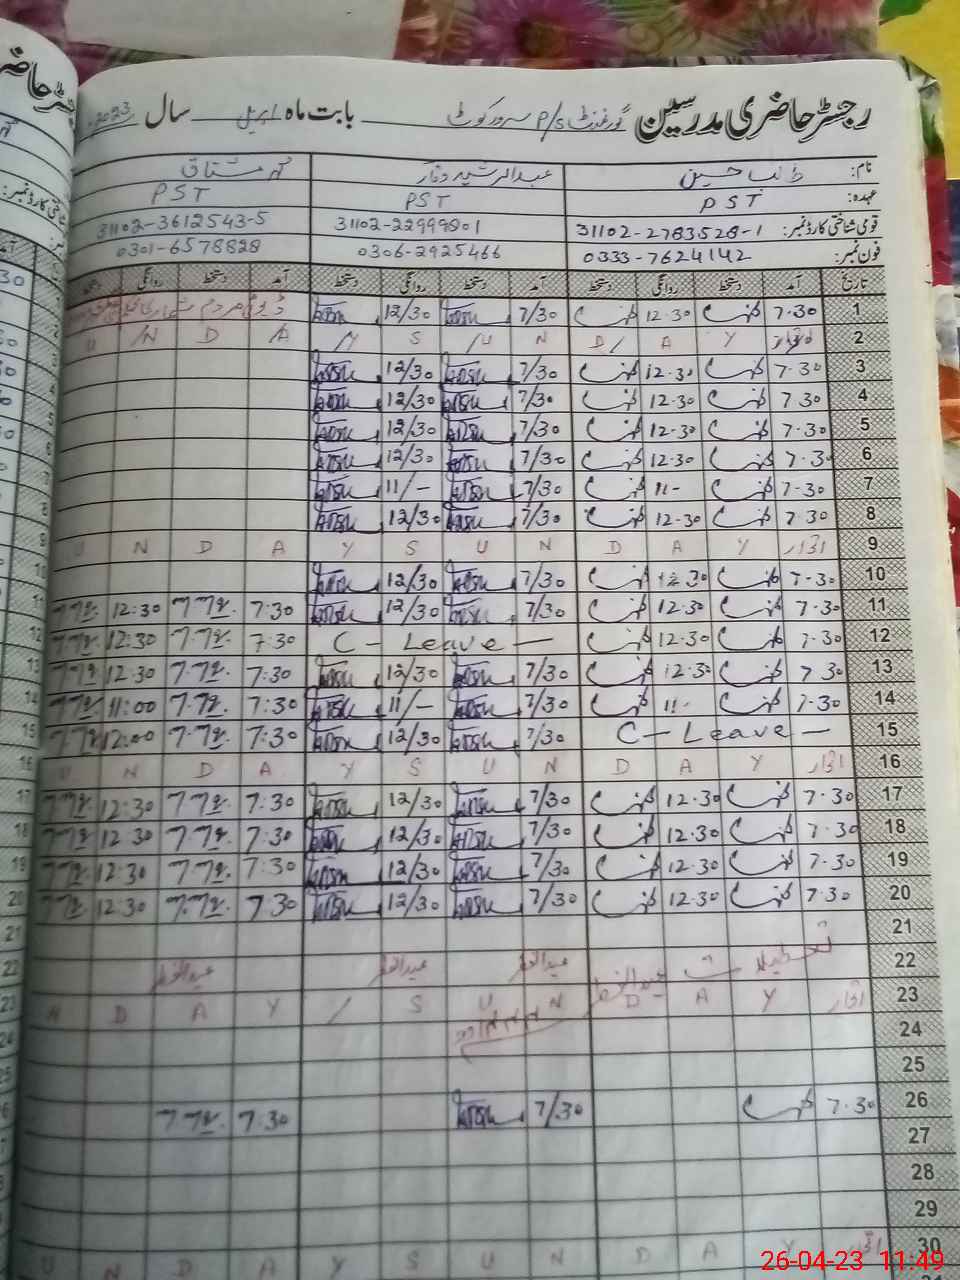 رجسٹر حاضری مدرسین گورنمنٹ P/S سرور کوٹ بابت ماہ اپریل سال 2023
نام: طالب حسین عبدالرشید وقار محمد مشتاق
عہدہ: PST PST PST
قومی شناختی کارڈ نمبر: 31102-2783528-1 31102-2299980-1 31102-3612543-5
فون نمبر: 0333-7624142 0306-2925466 0301-6578828
تاریخ آمد دستخط روانگی دستخط آمد دستخط روانگی دستخط آمد دستخط روانگی دستخط
1 7.30 12.30 7/30 12/30 ڈیوٹی مردم شماری
2 اتوار Y A D N U S Y A D N U
3 7.30 12.30 7/30 12/30
4 7.30 12.30 7/30 12/30
5 7.30 12.30 7/30 12/30
6 7.30 12.30 7/30 12/30
7 7.30 11- 7/30 11/-
8 7.30 12.30 7/30 12/30
9 اتوار Y A D N U S Y A D N U
10 7.30 12.30 7/30 12/30
11 7.30 12.30 7/30 12/30 7:30 12:30
12 7.30 12.30 C - Leave - 7:30 12:30
13 7.30 12.30 7/30 12/30 7:30 12:30
14 7.30 11- 7/30 11/- 7:30 11:00
15 C - Leave - 7/30 12/30 7:30 12:00
16 اتوار Y A D N U S Y A D N U
17 7.30 12.30 7/30 12/30 7:30 12:30
18 7.30 12.30 7/30 12/30 7:30 12:30
19 7.30 12.30 7/30 12/30 7:30 12:30
20 7.30 12.30 7/30 12/30 7:30 12:30
21
22 تعطیلات عیدالفطر عیدالفطر عیدالفطر عیدالفطر
23 اتوار Y A D N U S / Y A D N
24
25
26 7.30 7/30 7:30
27
28
29
30 اتوار Y A D N U S Y A D N U
26-04-23 11:49